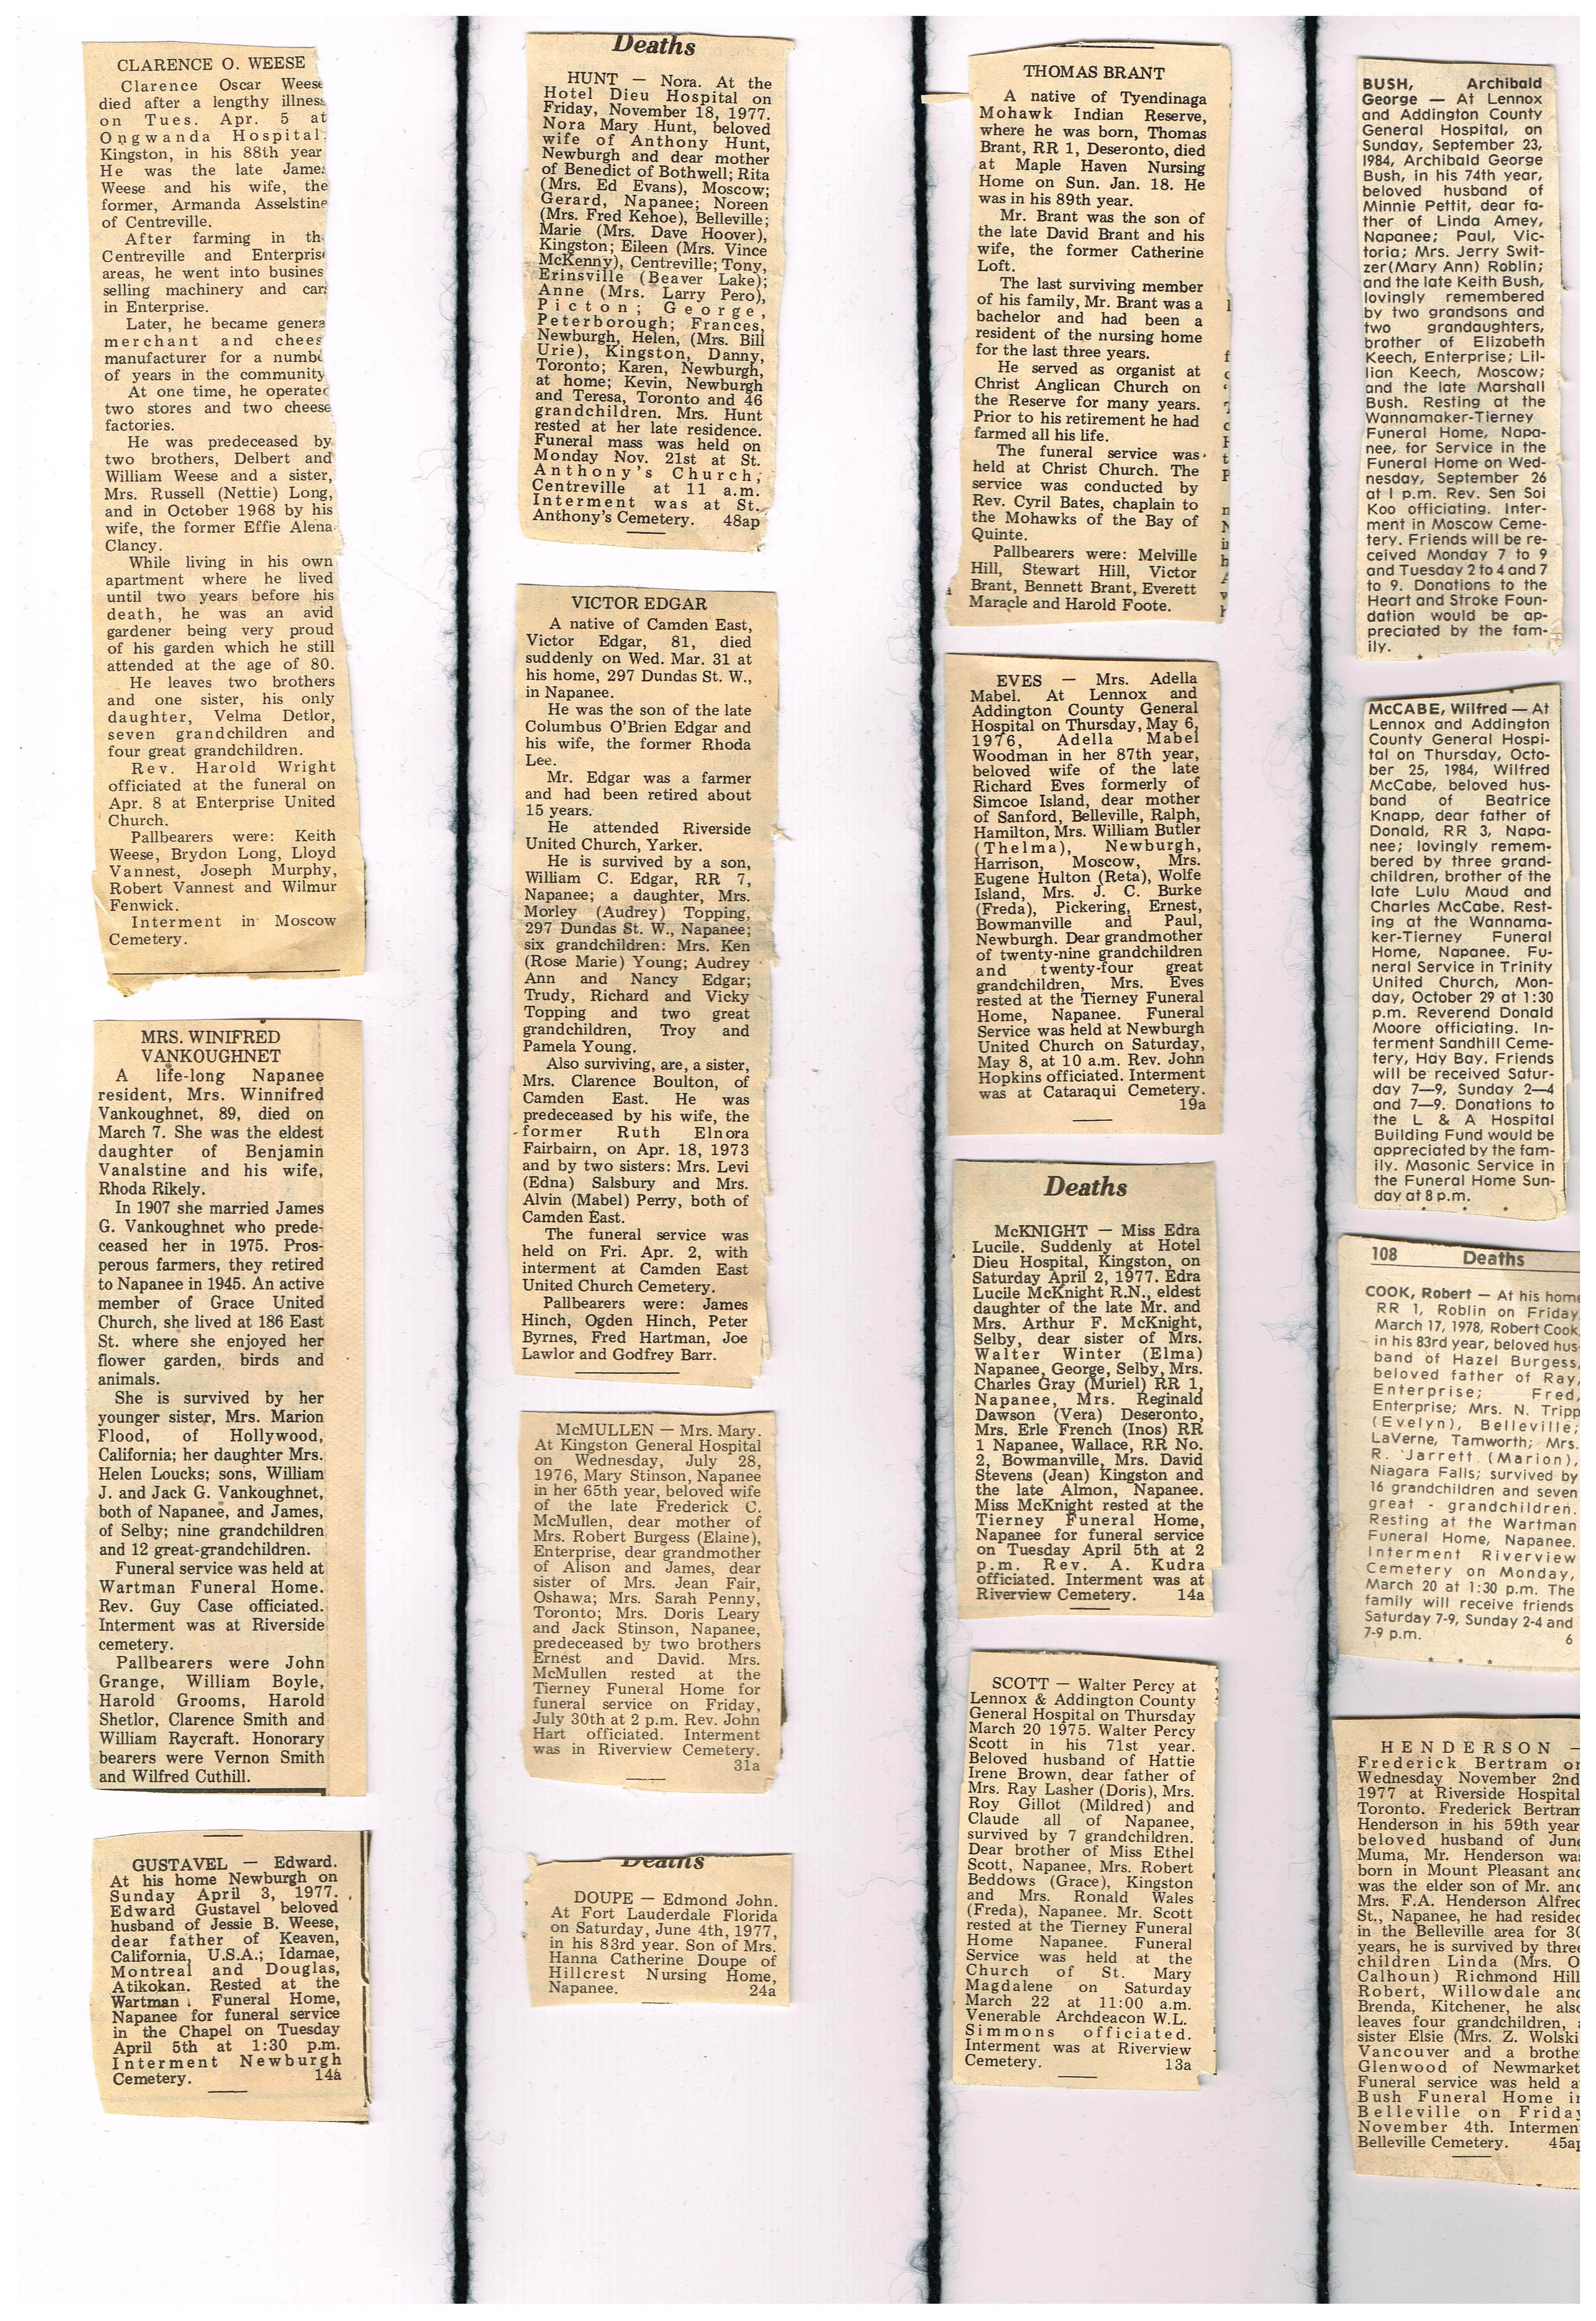 CLARENCE O. WEESE
Clarence Oscar Weese
died after a lengthy illness
on Tues. Apr. 5 at
Ongwanda Hospital,
Kingston, in his 88th year.
He was the late James
Weese and his wife, the
former, Armanda Asselstine
of Centreville.
After farming in the
Centreville and Enterprise
areas, he went into busines
selling machinery and cars
in Enterprise.
Later, he became genera
merchant and chees
manufacturer for a numbe
of years in the community
At one time, he operated
two stores and two cheese
factories.
He was predeceased by
two brothers, Delbert and
William Weese and a sister,
Mrs. Russell (Nettie) Long,
and in October 1968 by his
wife, the former Effie Alena
Clancy.
While living in his own
apartment where he lived
until two years before his
death, he was an avid
gardener being very proud
of his garden which he still
attended at the age of 80.
He leaves two brothers
and one sister, his only
daughter, Velma Detlor,
seven grandchildren and
four great grandchildren.
Rev. Harold Wright
officiated at the funeral on
Apr. 8 at Enterprise United
Church.
Pallbearers were: Keith
Weese, Brydon Long, Lloyd
Vannest, Joseph Murphy,
Robert Vannest and Wilmur
Fenwick.
Interment in Moscow
Cemetery.
MRS. WINIFRED
VANKOUGHNET
A life-long Napanee
resident, Mrs. Winnifred
Vankoughnet, 89, died on
March 7. She was the eldest
daughter of Benjamin
Vanalstine and his wife,
Rhoda Rikely.
In 1907 she married James
G. Vankoughnet who prede-
ceased her in 1975. Pros-
perous farmers, they retired
to Napanee in 1945. An active
member of Grace United
Church, she lived at 186 East
St. where she enjoyed her
flower garden, birds and
animals.
She is survived by her
younger sister, Mrs. Marion
Flood, of Hollywood,
California; her daughter Mrs.
Helen Loucks; sons, William
J. and Jack G. Vankoughnet,
both of Napanee, and James,
of Selby; nine grandchildren
and 12 great-grandchildren.
Funeral service was held at
Wartman Funeral Home.
Rev. Guy Case officiated.
Interment was at Riverside
cemetery.
Pallbearers were John
Grange, William Boyle,
Harold Grooms, Harold
Shetlor, Clarence Smith and
William Raycraft. Honorary
bearers were Vernon Smith
and Wilfred Cuthill.
GUSTAVEL — Edward.
At his home Newburgh on
Sunday April 3, 1977.
Edward Gustavel beloved
husband of Jessie B. Weese,
dear father of Keaven,
California, U.S.A.; Idamae,
Montreal and Douglas,
Atikokan. Rested at the
Wartman Funeral Home,
Napanee for funeral service
in the Chapel on Tuesday
April 5th at 1:30 p.m.
Interment Newburgh
Cemetery. 14a
Deaths
HUNT — Nora. At the
Hotel Dieu Hospital on
Friday, November 18, 1977.
Nora Mary Hunt, beloved
wife of Anthony Hunt,
Newburgh and dear mother
of Benedict of Bothwell; Rita
(Mrs. Ed Evans), Moscow;
Gerard, Napanee; Noreen
(Mrs. Fred Kehoe), Belleville;
Marie (Mrs. Dave Hoover),
Kingston; Eileen (Mrs. Vince
McKenny), Centreville; Tony,
Erinsville (Beaver Lake);
Anne (Mrs. Larry Pero),
Picton; George,
Peterborough; Frances,
Newburgh, Helen, (Mrs. Bill
Urie), Kingston, Danny,
Toronto; Karen, Newburgh,
at home; Kevin, Newburgh
and Teresa, Toronto and 46
grandchildren. Mrs. Hunt
rested at her late residence.
Funeral mass was held on
Monday Nov. 21st at St.
Anthony's Church,
Centreville at 11 a.m.
Interment was at St.
Anthony's Cemetery. 48ap
VICTOR EDGAR
A native of Camden East,
Victor Edgar, 81, died
suddenly on Wed. Mar. 31 at
his home, 297 Dundas St. W.,
in Napanee.
He was the son of the late
Columbus O'Brien Edgar and
his wife, the former Rhoda
Lee.
Mr. Edgar was a farmer
and had been retired about
15 years.
He attended Riverside
United Church, Yarker.
He is survived by a son,
William C. Edgar, RR 7,
Napanee; a daughter, Mrs.
Morley (Audrey) Topping,
297 Dundas St. W., Napanee;
six grandchildren: Mrs. Ken
(Rose Marie) Young; Audrey
Ann and Nancy Edgar;
Trudy, Richard and Vicky
Topping and two great
grandchildren, Troy and
Pamela Young.
Also surviving, are, a sister,
Mrs. Clarence Boulton, of
Camden East. He was
predeceased by his wife, the
former Ruth Elnora
Fairbairn, on Apr. 18, 1973
and by two sisters: Mrs. Levi
(Edna) Salsbury and Mrs.
Alvin (Mabel) Perry, both of
Camden East.
The funeral service was
held on Fri. Apr. 2, with
interment at Camden East
United Church Cemetery.
Pallbearers were: James
Hinch, Ogden Hinch, Peter
Byrnes, Fred Hartman, Joe
Lawlor and Godfrey Barr.
McMULLEN — Mrs. Mary.
At Kingston General Hospital
on Wednesday, July 28,
1976, Mary Stinson, Napanee
in her 65th year, beloved wife
of the late Frederick C.
McMullen, dear mother of
Mrs. Robert Burgess (Elaine),
Enterprise, dear grandmother
of Alison and James, dear
sister of Mrs. Jean Fair,
Oshawa; Mrs. Sarah Penny,
Toronto; Mrs. Doris Leary
and Jack Stinson, Napanee,
predeceased by two brothers
Ernest and David. Mrs.
McMullen rested at the
Tierney Funeral Home for
funeral service on Friday,
July 30th at 2 p.m. Rev. John
Hart officiated. Interment
was in Riverview Cemetery.
31a
Deaths
DOUPE — Edmond John.
At Fort Lauderdale Florida
on Saturday, June 4th, 1977,
in his 83rd year. Son of Mrs.
Hanna Catherine Doupe of
Hillcrest Nursing Home,
Napanee. 24a
THOMAS BRANT
A native of Tyendinaga
Mohawk Indian Reserve,
where he was born, Thomas
Brant, RR 1, Deseronto, died
at Maple Haven Nursing
Home on Sun. Jan. 18. He
was in his 89th year.
Mr. Brant was the son of
the late David Brant and his
wife, the former Catherine
Loft.
The last surviving member
of his family, Mr. Brant was a
bachelor and had been a
resident of the nursing home
for the last three years.
He served as organist at
Christ Anglican Church on
the Reserve for many years.
Prior to his retirement he had
farmed all his life.
The funeral service was
held at Christ Church. The
service was conducted by
Rev. Cyril Bates, chaplain to
the Mohawks of the Bay of
Quinte.
Pallbearers were: Melville
Hill, Stewart Hill, Victor
Brant, Bennett Brant, Everett
Maracle and Harold Foote.
EVES — Mrs. Adella
Mabel. At Lennox and
Addington County General
Hospital on Thursday, May 6,
1976, Adella Mabel
Woodman in her 87th year,
beloved wife of the late
Richard Eves formerly of
Simcoe Island, dear mother
of Sanford, Belleville, Ralph,
Hamilton, Mrs. William Butler
(Thelma), Newburgh,
Harrison, Moscow, Mrs.
Eugene Hulton (Reta), Wolfe
Island, Mrs. J. C. Burke
(Freda), Pickering, Ernest,
Bowmanville and Paul,
Newburgh. Dear grandmother
of twenty-nine grandchildren
and twenty-four great
grandchildren, Mrs. Eves
rested at the Tierney Funeral
Home, Napanee. Funeral
Service was held at Newburgh
United Church on Saturday,
May 8, at 10 a.m. Rev. John
Hopkins officiated. Interment
was at Cataraqui Cemetery.
19a
Deaths
McKNIGHT — Miss Edra
Lucile. Suddenly at Hotel
Dieu Hospital, Kingston, on
Saturday April 2, 1977. Edra
Lucile McKnight R.N., eldest
daughter of the late Mr. and
Mrs. Arthur F. McKnight,
Selby, dear sister of Mrs.
Walter Winter (Elma)
Napanee, George, Selby, Mrs.
Charles Gray (Muriel) RR 1,
Napanee, Mrs. Reginald
Dawson (Vera) Deseronto,
Mrs. Erle French (Inos) RR
1 Napanee, Wallace, RR No.
2, Bowmanville, Mrs. David
Stevens (Jean) Kingston and
the late Almon, Napanee.
Miss McKnight rested at the
Tierney Funeral Home,
Napanee for funeral service
on Tuesday April 5th at 2
p.m. Rev. A. Kudra
officiated. Interment was at
Riverview Cemetery. 14a
SCOTT — Walter Percy at
Lennox & Addington County
General Hospital on Thursday
March 20 1975. Walter Percy
Scott in his 71st year.
Beloved husband of Hattie
Irene Brown, dear father of
Mrs. Ray Lasher (Doris), Mrs.
Roy Gillot (Mildred) and
Claude all of Napanee,
survived by 7 grandchildren.
Dear brother of Miss Ethel
Scott, Napanee, Mrs. Robert
Beddows (Grace), Kingston
and Mrs. Ronald Wales
(Freda), Napanee. Mr. Scott
rested at the Tierney Funeral
Home Napanee. Funeral
Service was held at the
Church of St. Mary
Magdalene on Saturday
March 22 at 11:00 a.m.
Venerable Archdeacon W.L.
Simmons officiated.
Interment was at Riverview
Cemetery. 13a
BUSH, Archibald
George — At Lennox
and Addington County
General Hospital, on
Sunday, September 23,
1984, Archibald George
Bush, in his 74th year,
beloved husband of
Minnie Pettit, dear fa-
ther of Linda Amey,
Napanee; Paul, Vic-
toria; Mrs. Jerry Swit-
zer(Mary Ann) Roblin;
and the late Keith Bush,
lovingly remembered
by two grandsons and
two grandaughters,
brother of Elizabeth
Keech, Enterprise; Lil-
lian Keech, Moscow;
and the late Marshall
Bush. Resting at the
Wannamaker-Tierney
Funeral Home, Napa-
nee, for Service in the
Funeral Home on Wed-
nesday, September 26
at 1 p.m. Rev. Sen Soi
Koo officiating. Inter-
ment in Moscow Ceme-
tery. Friends will be re-
ceived Monday 7 to 9
and Tuesday 2 to 4 and 7
to 9. Donations to the
Heart and Stroke Foun-
dation would be ap-
preciated by the fam-
ily.
McCABE, Wilfred — At
Lennox and Addington
County General Hospi-
tal on Thursday, Octo-
ber 25, 1984, Wilfred
McCabe, beloved hus-
band of Beatrice
Knapp, dear father of
Donald, RR 3, Napa-
nee; lovingly remem-
bered by three grand-
children, brother of the
late Lulu Maud and
Charles McCabe. Rest-
ing at the Wannama-
ker-Tierney Funeral
Home, Napanee. Fu-
neral Service in Trinity
United Church, Mon-
day, October 29 at 1:30
p.m. Reverend Donald
Moore officiating. In-
terment Sandhill Ceme-
tery, Hay Bay. Friends
will be received Satur-
day 7—9, Sunday 2—4
and 7—9. Donations to
the L & A Hospital
Building Fund would be
appreciated by the fam-
ily. Masonic Service in
the Funeral Home Sun-
day at 8 p.m.
108 Deaths
COOK, Robert — At his home
RR 1, Roblin on Friday,
March 17, 1978, Robert Cook,
in his 83rd year, beloved hus-
band of Hazel Burgess,
beloved father of Ray,
Enterprise; Fred,
Enterprise; Mrs. N. Tripp
(Evelyn), Belleville;
LaVerne, Tamworth; Mrs.
R. Jarrett (Marion),
Niagara Falls; survived by
16 grandchildren and seven
great - grandchildren.
Resting at the Wartman
Funeral Home, Napanee.
Interment Riverview
Cemetery on Monday,
March 20 at 1:30 p.m. The
family will receive friends
Saturday 7-9, Sunday 2-4 and
7-9 p.m. 6
HENDERSON —
Frederick Bertram on
Wednesday November 2nd
1977 at Riverside Hospital
Toronto. Frederick Bertram
Henderson in his 59th year
beloved husband of June
Muma, Mr. Henderson was
born in Mount Pleasant and
was the elder son of Mr. and
Mrs. F.A. Henderson Alfred
St., Napanee, he had resided
in the Belleville area for 30
years, he is survived by three
children Linda (Mrs. O.
Calhoun) Richmond Hill
Robert, Willowdale and
Brenda, Kitchener, he also
leaves four grandchildren, a
sister Elsie (Mrs. Z. Wolski
Vancouver and a brother
Glenwood of Newmarket
Funeral service was held at
Bush Funeral Home in
Belleville on Friday
November 4th. Interment
Belleville Cemetery. 45ap